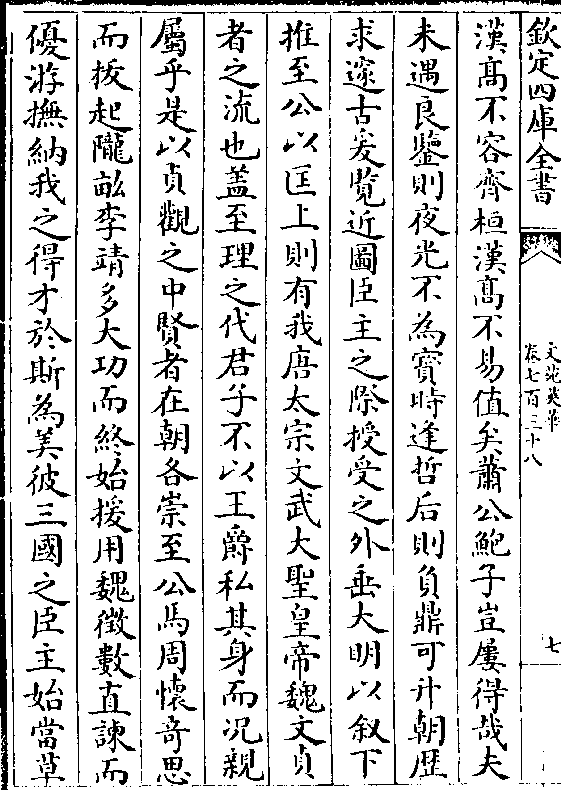 欽定四庫全書
文苑英華
卷七百三十八
七
漢髙不容齊桓漢髙不易值矣蕭公鮑子豈屢得哉夫
未遇良鑒則夜光不為寳時逢哲后則負鼎可升朝歴
求邃古爰覽近圖臣主之際授受之外垂大明以叙下
推至公以匡上則有我唐太宗文武大聖皇帝魏文貞
者之流也盖至理之代君子不以王爵私其身而况親
屬乎是以貞觀之中賢者在朝各崇至公馬周懷竒思
而拔起隴畝李靖多大功而終始援用魏徵數直諫而
優游撫納我之得才於斯為美彼三國之臣主始當草